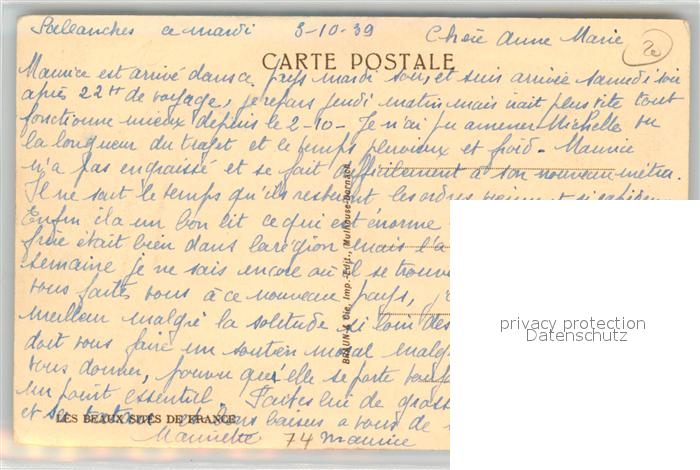 Sallanches ce mardi 3-10-39 Chère Anne Marie
20
CARTE POSTALE
Maurice est arrivé dans ce pays mardi soir, et suis arrivée samedi soir
après 22 h de voyage, je repars jeudi matin mais irait plus vite tout
fonctionne mieux depuis le 2-10- Je n'ai pu amener Michelle vu
la longueur du trajet et le temps pluvieux et froid - Maurice
n'a pas engraissé et se fait difficilement à son nouveau métier.
Il ne sait le temps qu'ils resteront les ordres
Enfin il a un bon lit ce qui est énorme
était bien dans la région mais l'a
semaine je ne sais encore où il se trouve
vous faites vous à ce nouveau pays,
meilleur malgré la solitude si loin des
doit vous faire un soutien moral malg
vous donner, pourvu qu'elle se porte
un point essentiel. Faites lui de gross
et baisers à vous de
LES BEAUX SITES DE FRANCE
Mauricette 74 Maurice
BRAUN & Cie, Imp.-Édit., Mulhouse-Dornach
privacy protection
Datenschutz